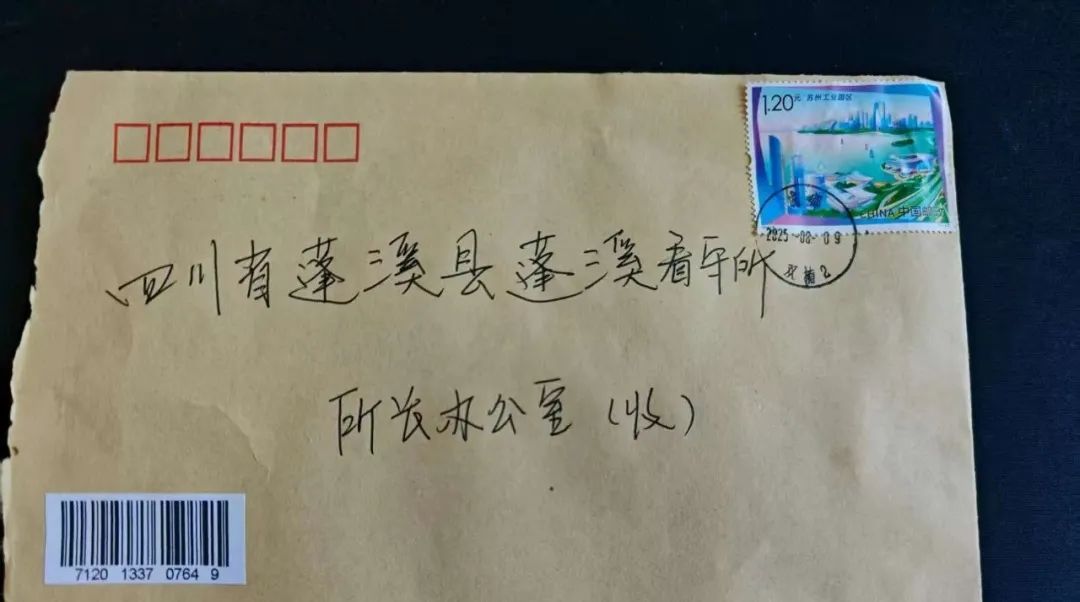 1.20元 苏州工业园区
CHINA 中国邮政
2025-08-09
四川省蓬溪县蓬溪看守所
所长办公室（收）
7120 1337 0764 9